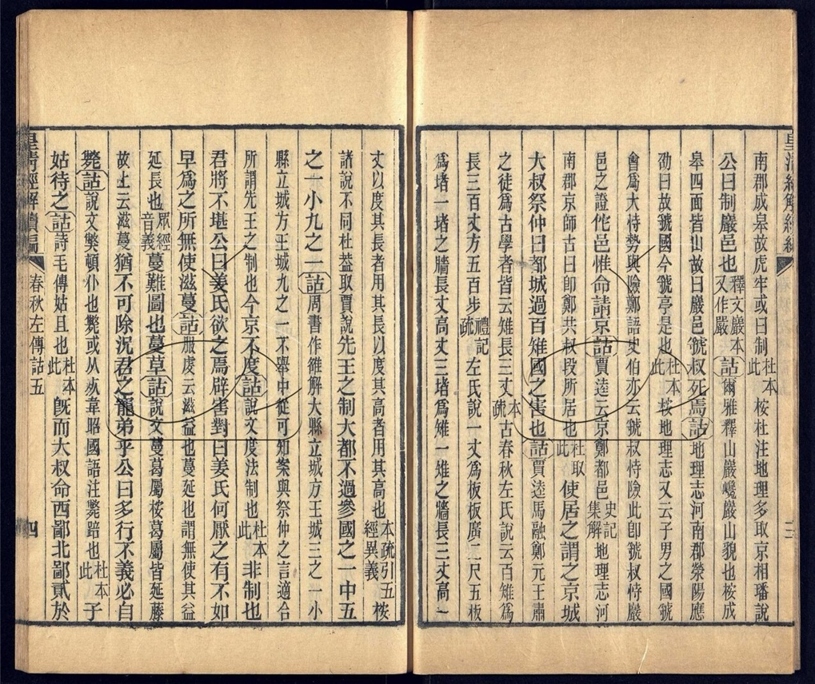 南郡成皋故虎牢或曰制杜本此桉杜注地理多取京相璠說
公曰制巖邑也釋文巖本又作嚴詁爾雅釋山巖巉巖山貌也桉成
皋四面皆山故曰巖邑虢叔死焉詁地理志河南郡滎陽應
劭曰故虢國今虢亭是也杜本此桉地理志又云子男之國虢
會爲大恃勢與險鄭語史伯亦云虢叔恃險此卽虢叔恃巖
邑之證佗邑惟命請京詁賈逵云京鄭都邑史記集解地理志河
南郡京師古曰卽鄭共叔段所居也杜取此使居之謂之京城
大叔祭仲曰都城過百雉國之害也詁賈逵馬融鄭元王肅
之徒爲古學者皆云雉長三丈本疏古春秋左氏說云百雉爲
長三百丈方五百步禮記疏左氏說一丈爲板板廣二尺五板
爲堵一堵之牆長丈高丈三堵爲雉一雉之牆長三丈高一
丈以度其長者用其長以度其高者用其高也本疏引五經異義桉
諸說不同杜葢取賈說先王之制大都不過參國之一中五
之一小九之一詁周書作雒解大縣立城方王城三之一小
縣立城方王城九之一不舉中從可知案與祭仲之言適合
所謂先王之制也今京不度詁說文度法制也杜本此非制也
君將不堪公曰姜氏欲之焉辟害對曰姜氏何厭之有不如
早爲之所無使滋蔓詁服虔云滋益也蔓延也謂無使其益
延長也眾經音義蔓難圖也蔓草詁說文蔓葛屬桉葛屬皆延藤
故上云滋蔓猶不可除況君之寵弟乎公曰多行不義必自
斃詁說文獘頓仆也斃或从死韋昭國語注斃踣也杜本此子
姑待之詁詩毛傳姑且也杜本此旣而大叔命西鄙北鄙貳於
皇清經解續編 春秋左傳詁五 四